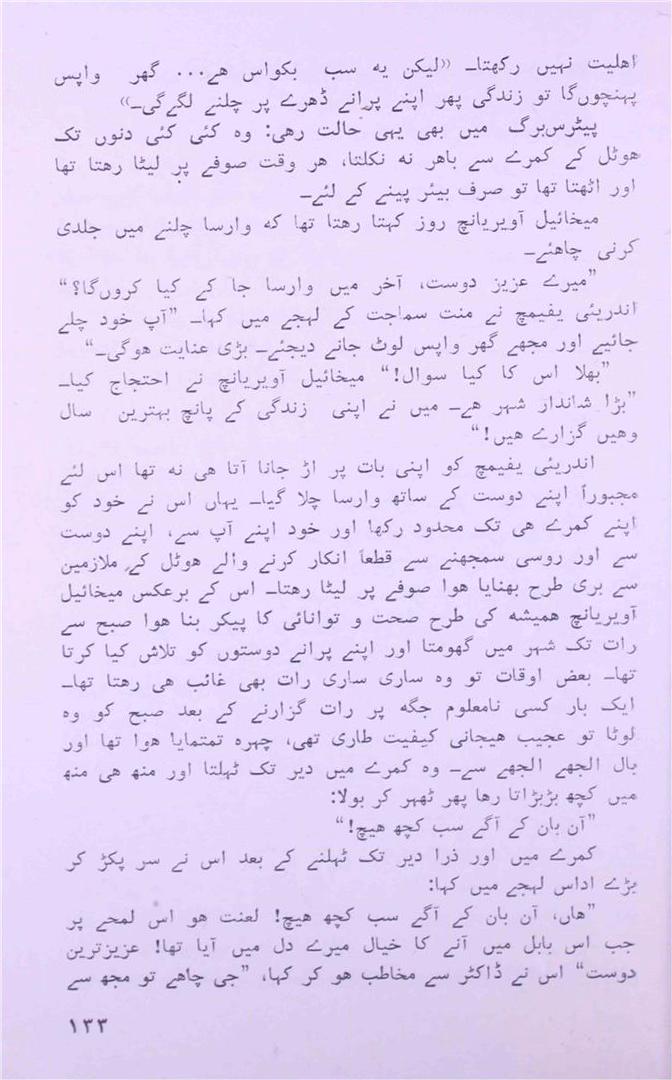 اهلیت نہیں رکھتا۔ «لیکن یه سب بکواس هے... گھر واپس
پہنچوں‌گا تو زندگی پھر اپنے پرانے ڈھرے پر چلنے لگے‌گی۔»
پیٹرس‌برگ میں بھی یہی حالت رهی: وه کئی کئی دنوں تک
هوٹل کے کمرے سے باهر نه نکلتا، هر وقت صوفے پر لیٹا رهتا تھا
اور اٹھتا تھا تو صرف بیئر پینے کے لئے۔
میخائیل آویریانچ روز کہتا رهتا تھا که وارسا چلنے میں جلدی
کرنی چاهئے۔
”میرے عزیز دوست، آخر میں وارسا جا کے کیا کروں‌گا؟“
اندریئی یفیمچ نے منت سماجت کے لہجے میں کہا۔ ”آپ خود چلے
جائیے اور مجھے گھر واپس لوٹ جانے دیجئے۔ بڑی عنایت هوگی۔“
”بھلا اس کا کیا سوال!“ میخائیل آویریانچ نے احتجاج کیا۔
”بڑا شاندار شہر هے۔ میں نے اپنی زندگی کے پانچ بہترین سال
وهیں گزارے هیں!“
اندریئی یفیمچ کو اپنی بات پر اڑ جانا آتا هی نه تھا اس لئے
مجبوراً اپنے دوست کے ساتھ وارسا چلا گیا۔ یہاں اس نے خود کو
اپنے کمرے هی تک محدود رکھا اور خود اپنے آپ سے، اپنے دوست
سے اور روسی سمجھنے سے قطعاً انکار کرنے والے هوٹل کے ملازمین
سے بری طرح بھنایا هوا صوفے پر لیٹا رهتا۔ اس کے برعکس میخائیل
آویریانچ همیشه کی طرح صحت و توانائی کا پیکر بنا هوا صبح سے
رات تک شہر میں گھومتا اور اپنے پرانے دوستوں کو تلاش کیا کرتا
تھا۔ بعض اوقات تو وه ساری ساری رات بھی غائب هی رهتا تھا۔
ایک بار کسی نامعلوم جگه پر رات گزارنے کے بعد صبح کو وه
لوٹا تو عجیب هیجانی کیفیت طاری تھی، چہره تمتمایا هوا تھا اور
بال الجھے الجھے سے۔ وه کمرے میں دیر تک ٹہلتا اور منھ هی منھ
میں کچھ بڑبڑاتا رها پھر ٹھہر کر بولا:
”آن بان کے آگے سب کچھ هیچ!“
کمرے میں اور ذرا دیر تک ٹہلنے کے بعد اس نے سر پکڑ کر
بڑے اداس لہجے میں کہا:
”هاں، آن بان کے آگے سب کچھ هیچ! لعنت هو اس لمحے پر
جب اس بابل میں آنے کا خیال میرے دل میں آیا تھا! عزیزترین
دوست“ اس نے ڈاکٹر سے مخاطب هو کر کہا، ”جی چاهے تو مجھ سے
۱۳۳